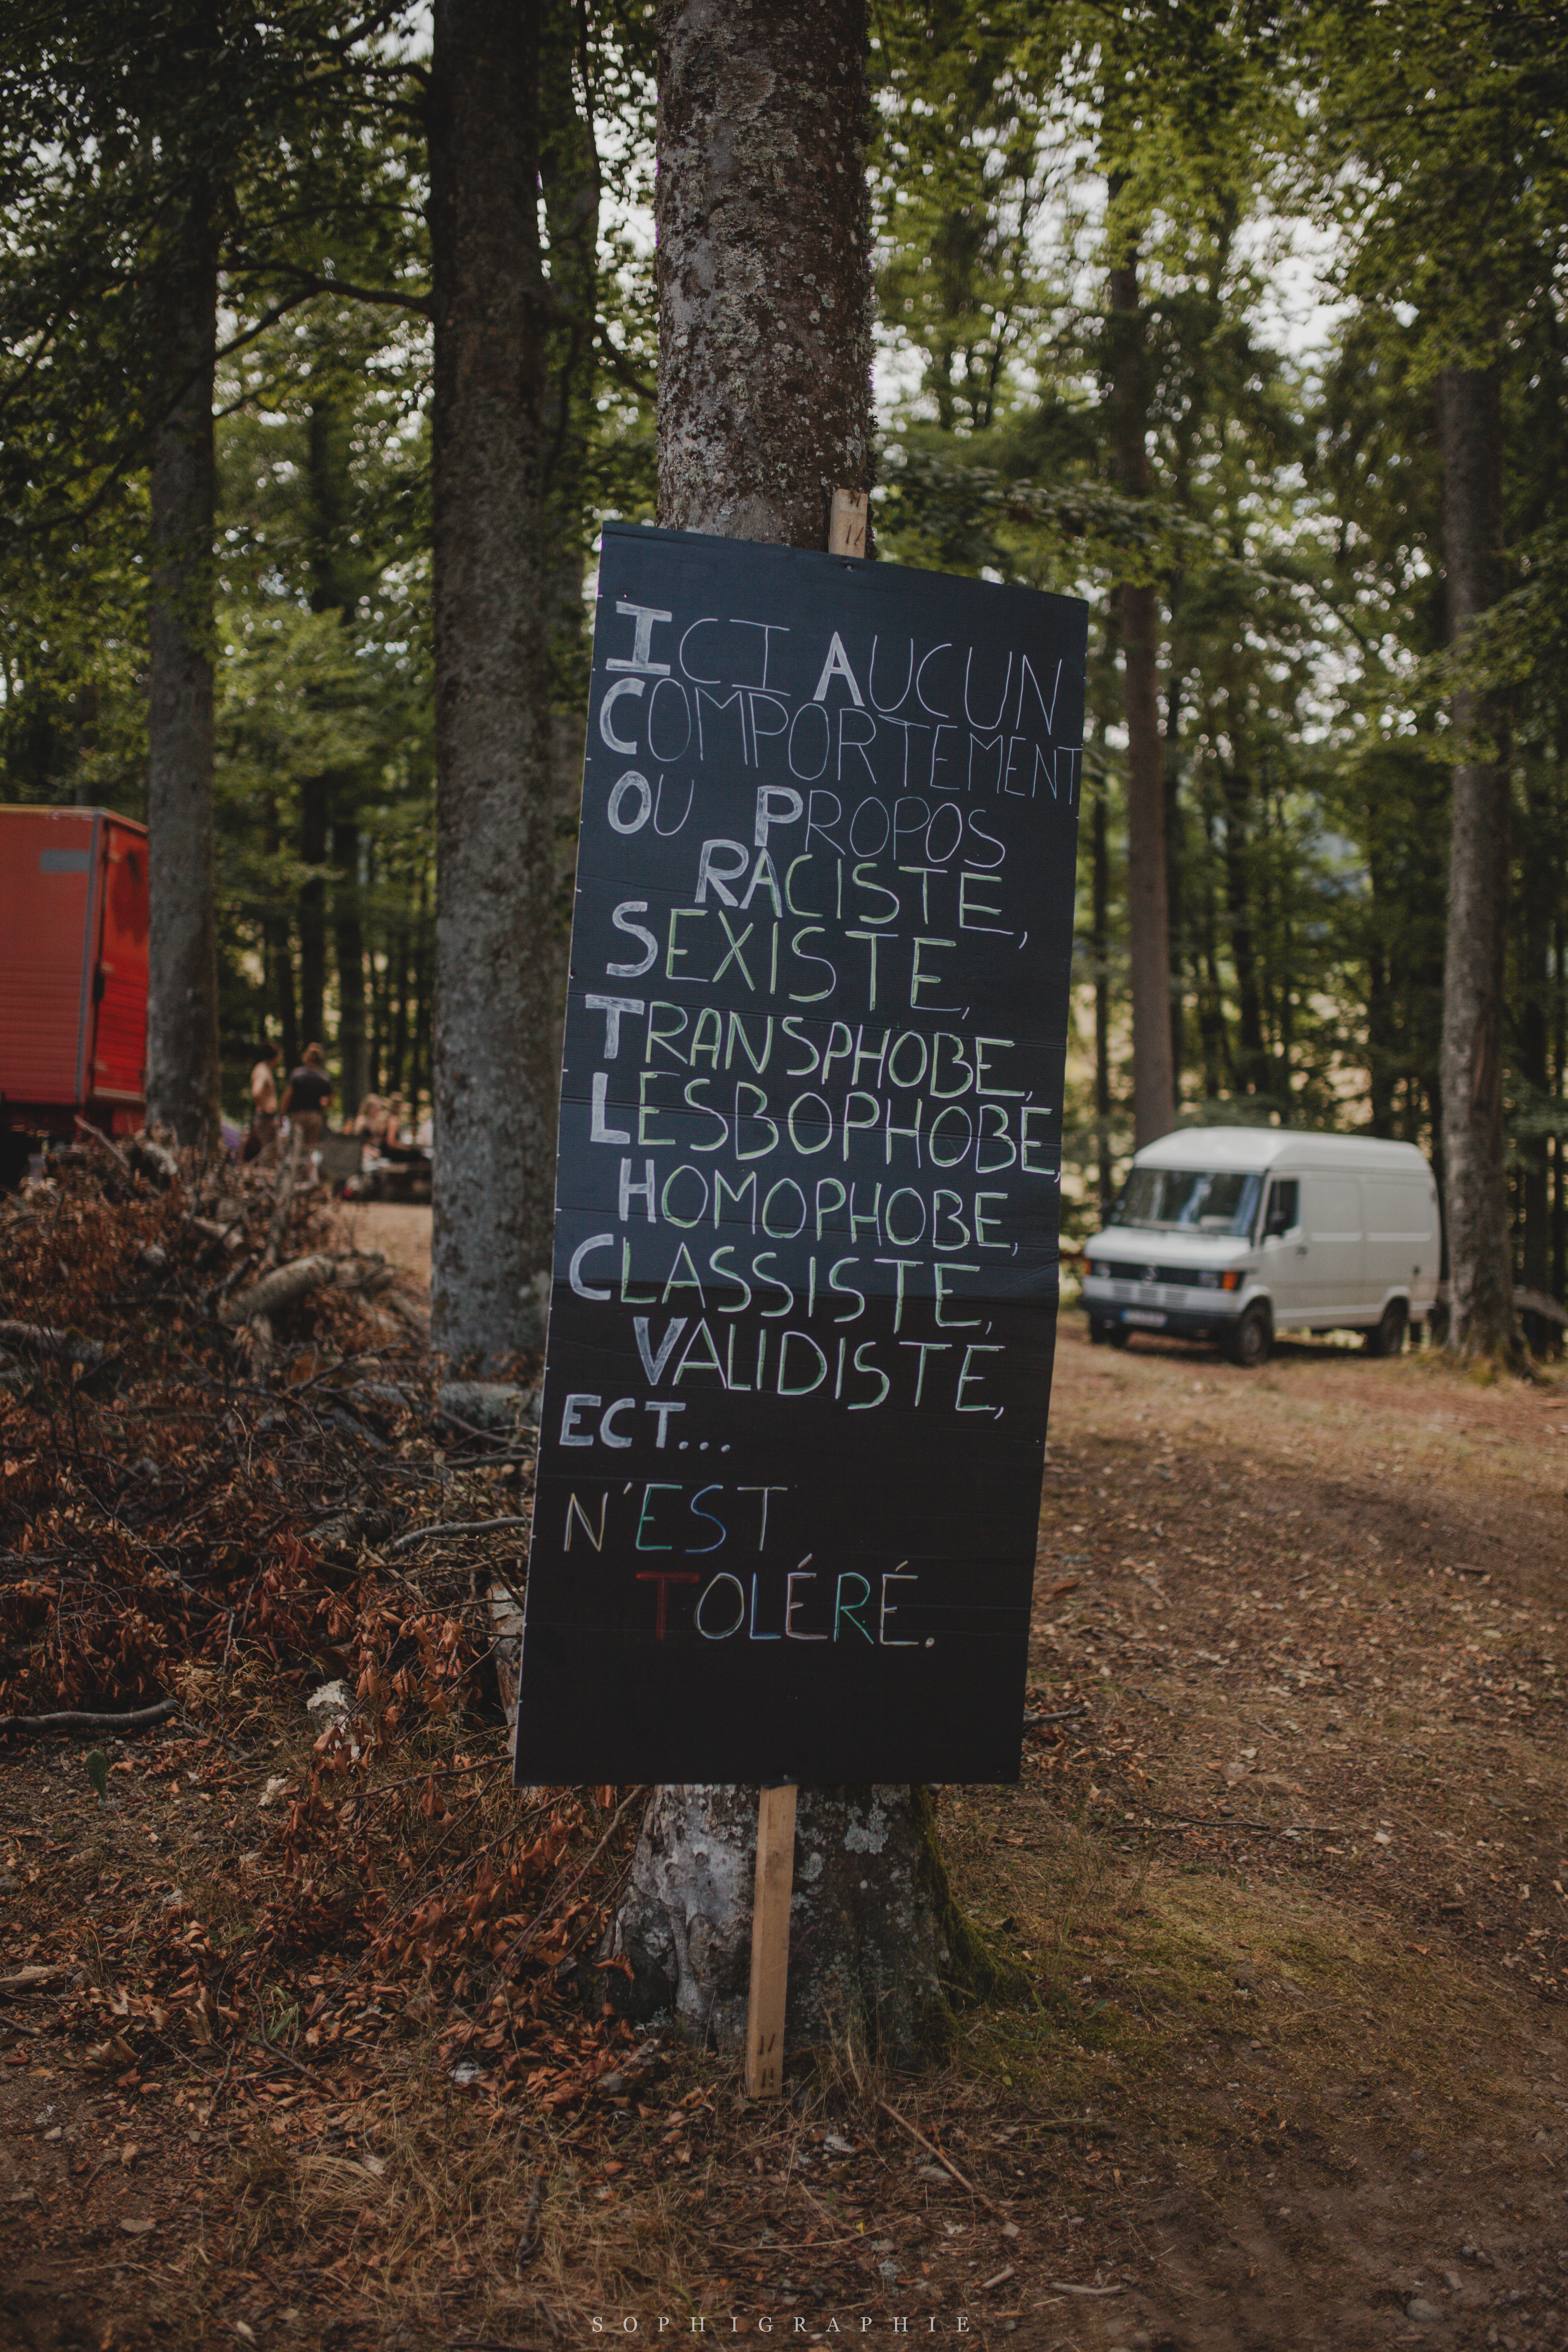 ICI AUCUN
COMPORTEMENT
OU PROPOS
RACISTE,
SEXISTE,
TRANSPHOBE,
LESBOPHOBE,
HOMOPHOBE,
CLASSISTE,
VALIDISTE,
ECT...
N'EST
TOLÉRÉ.
SOPHIGRAPHIE